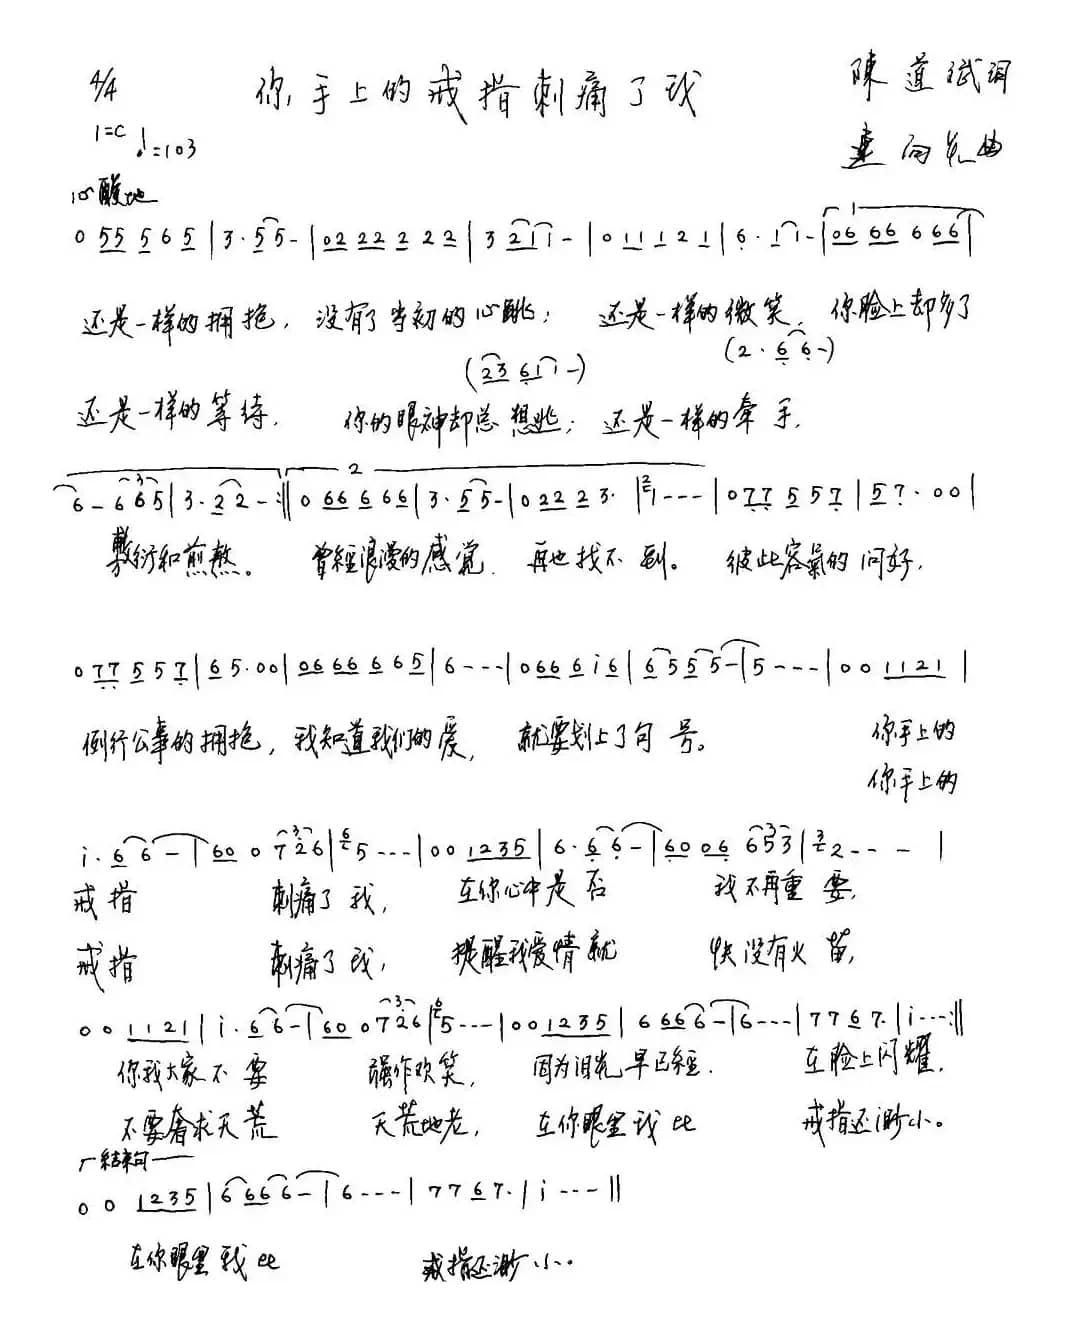 4/4 你手上的戒指刺痛了我 陳道斌詞
1=C ♩=103 曲
心酸地
0 55 5 6 5 | 3· 5 5 - | 02 22 2 2 2 | 3 2 1 1 - | 0 1 1 1 2 1 | 6· 1 1 - | 06 66 6 66 |
还是一样的拥抱，没有了当初的心跳；还是一样的微笑，你脸上却多了
(23 6 1 1 -) (2· 6 6 -)
还是一样的等待，你的眼神却总想逃；还是一样的牵手，
6 - 6 6 5 | 3· 2 2 - :‖ 0 66 6 66 | 3· 5 5 - | 0 2 2 2 3· | 1 - - - | 0 77 5 5 7 | 5 7· 0 0 |
敷衍和煎熬。曾經浪漫的感覚，再也找不到。彼此客氣的问好，
0 77 5 5 7 | 6 5· 0 0 | 06 66 6 6 5 | 6 - - - | 0 66 6 i 6 | 6 5 5 5 - | 5 - - - | 0 0 1121 |
例行公事的拥抱，我知道我们的爱，就要划上了句号。你手上的
你手上的
i· 6 6 - | 60 0 7 2 6 | 5 - - - | 0 0 1235 | 6· 6 6 - | 60 06 6 5 3 | 2 - - - |
戒指 刺痛了我，在你心中是否 我不再重要，
戒指 刺痛了我，提醒我爱情就 快没有火苗，
0 0 1121 | i· 6 6 - | 60 0 7 2 6 | 5 - - - | 0 0 1235 | 6 66 6 - | 6 - - - | 7 7 6 7· | i - - - :‖
你我大家不要 强作欢笑，因为泪光早已經 在脸上闪耀，
不要奢求天荒 天荒地老，在你眼里我比 戒指还渺小。
结束句
0 0 1235 | 6 66 6 - | 6 - - - | 7 7 6 7· | i - - - ‖
在你眼里我比 戒指还渺小。